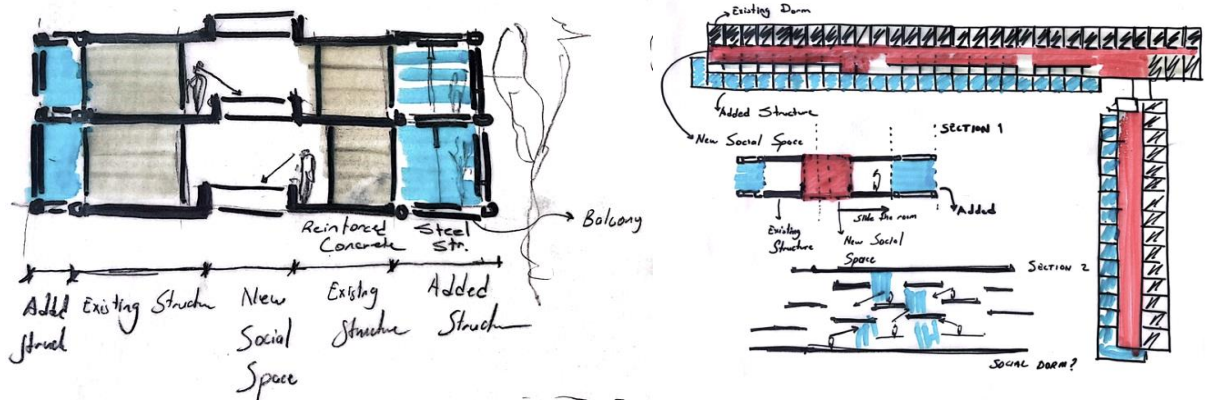 Balcony
Reinforced
Concrete
Steel
Str.
Existing Structure
New
Social
Space
Existing
Structure
Added
Structure
Existing Dorm
Added Structure
New Social Space
SECTION 1
Slide the room
Added
Existing
Structure
New Social
Space
SECTION 2
SOCIAL DORM?